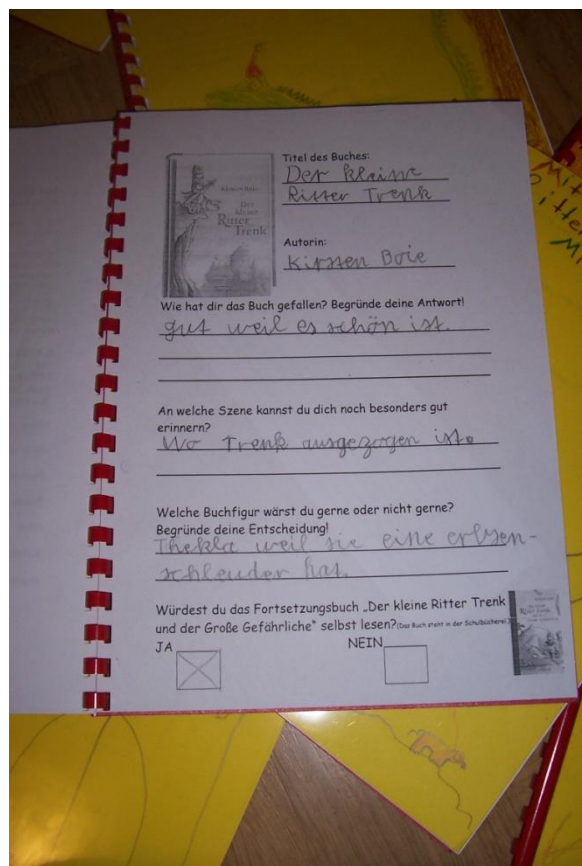 Titel des Buches:
Der kleine
Ritter Trenk
Kirsten Boie
Der
kleine
Ritter
Trenk
Autorin:
Kirsten Boie
Wie hat dir das Buch gefallen? Begründe deine Antwort!
gut weil es schön ist.
An welche Szene kannst du dich noch besonders gut
erinnern?
Wo Trenk ausgezogen ist.
Welche Buchfigur wärst du gerne oder nicht gerne?
Begründe deine Entscheidung!
Thekla weil sie eine erbsen-
schleuder hat.
Würdest du das Fortsetzungsbuch „Der kleine Ritter Trenk
und der Große Gefährliche“ selbst lesen? (Das Buch steht in der Schulbücherei.)
JA NEIN
Ritter Trenk